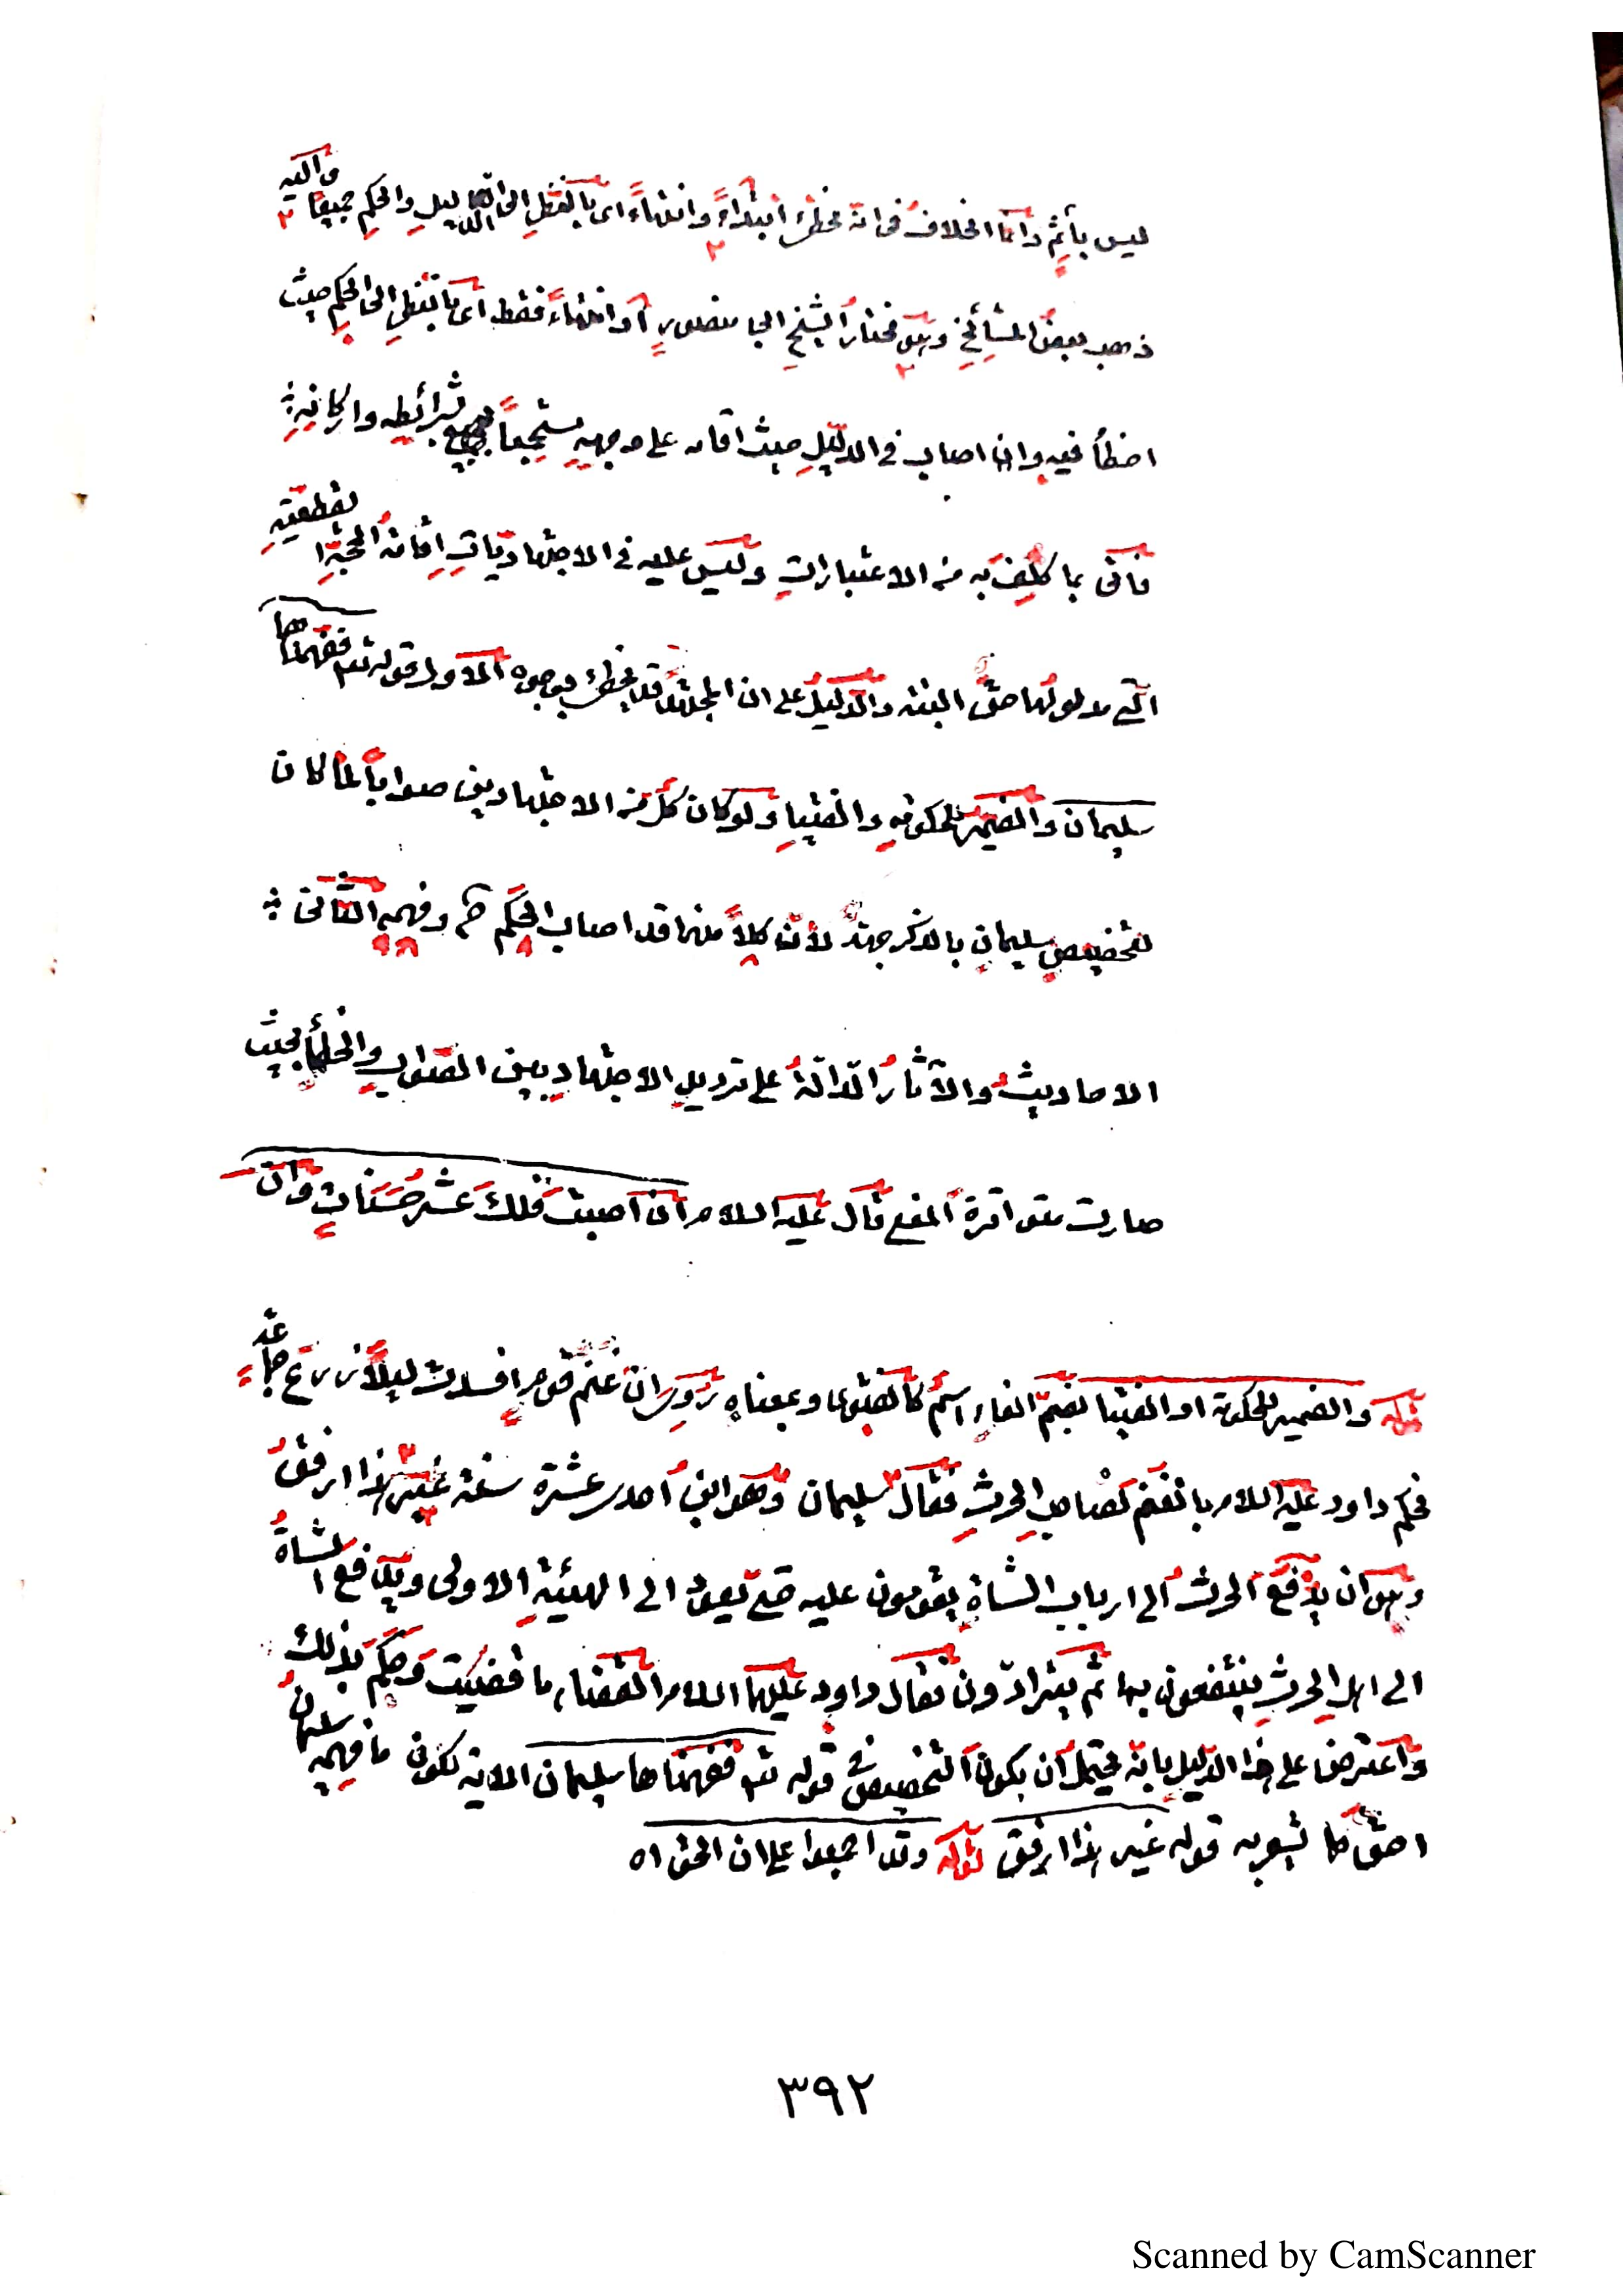 ليس بآثم وانما الخلاف في انه مخطئ ابتداءً وانتهاءً اى بالنظر الى الدليل والحكم جميعا واليه
ذهب بعض المشائخ وهو مختار الشيخ ابى منصور او انتهاءً فقط اى بالنظر الى الحكم حيث
اخطأ فيه وان اصاب في الدليل حيث اقامه على وجهه مستجمعاً لجميع شرائطه واركانه
فاتى بما كلف به من الاعتبارات وليس عليه في الاجتهاديات اقامة الحجة القطعية
التى مدلولها حق البتة والدليل على ان المجتهد قد يخطئ بوجوه الاول قوله تع ففهمناها
سليمان والضمير للحكومة والفتيا ولو كان كل من الاجتهادين صواباً لما كان
لتخصيص سليمان بالذكر جهة لأن كلاً منهما قد اصاب الحكم ح وفهمه الثانى
الاحاديث والآثار الدالة على ترديد الاجتهاد بين الصواب والخطأ بحيث
صارت متواترة المعنى قال عليه السلام ان اصبت فلك عشر حسنات وان
قوله والضمير للحكومة او الفتيا بضم الفاء اسم كالفتوى وبمعناه روى ان غنم قوم افسدت ليلاً زرع جماعة
فحكم داود عليه السلام بالغنم لصاحب الحرث فقال سليمان وهو ابن احدى عشرة سنة غير هذا ارفق
وهو ان يدفع الحرث الى ارباب الشاة يقومون عليه حتى يعود الى الهيئة الاولى ويدفع الشاة
الى اهل الحرث ينتفعون بها ثم يترادون فقال داود عليهما السلام القضاء ما قضيت وحكم بذلك
واعترض على هذا الدليل بانه يحتمل ان يكون التخصيص في قوله تع ففهمناها سليمان الاية لكون ما فهمه سليمان
احق كما يشعر به قوله غير هذا ارفق قوله وقد اجمعوا على ان الحق اه
٣٩٢
Scanned by CamScanner